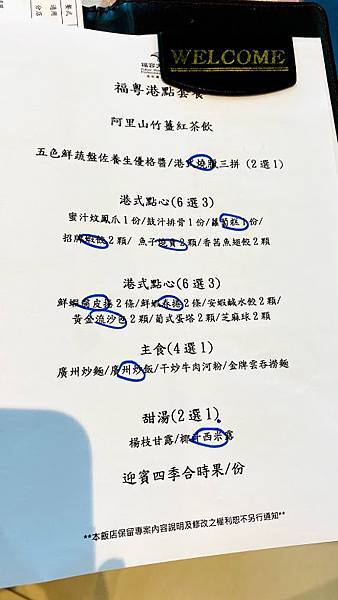 WELCOME
福容大
福粵港點套餐
阿里山竹薑紅茶飲
五色鮮蔬盤佐養生優格醬/港式燒臘三拼 (2選1)
港式點心(6選3)
蜜汁炆鳳爪1份/豉汁排骨1份/蘿蔔糕1份/
招牌蝦餃2顆/ 魚子燒賣2顆/香茜魚翅餃2顆
港式點心(6選3)
鮮蝦腐皮捲2條/鮮蝦春捲2條/安蝦鹹水餃2顆/
黃金流沙包2顆/葡式蛋塔2顆/芝麻球2顆
主食(4選1)
廣州炒麵/廣州炒飯/干炒牛肉河粉/金牌雲吞撈麵
甜湯(2選1)
楊枝甘露/椰汁西米露
迎賓四季合時果/份
**本飯店保留專案內容說明及修改之權利恕不另行通知**